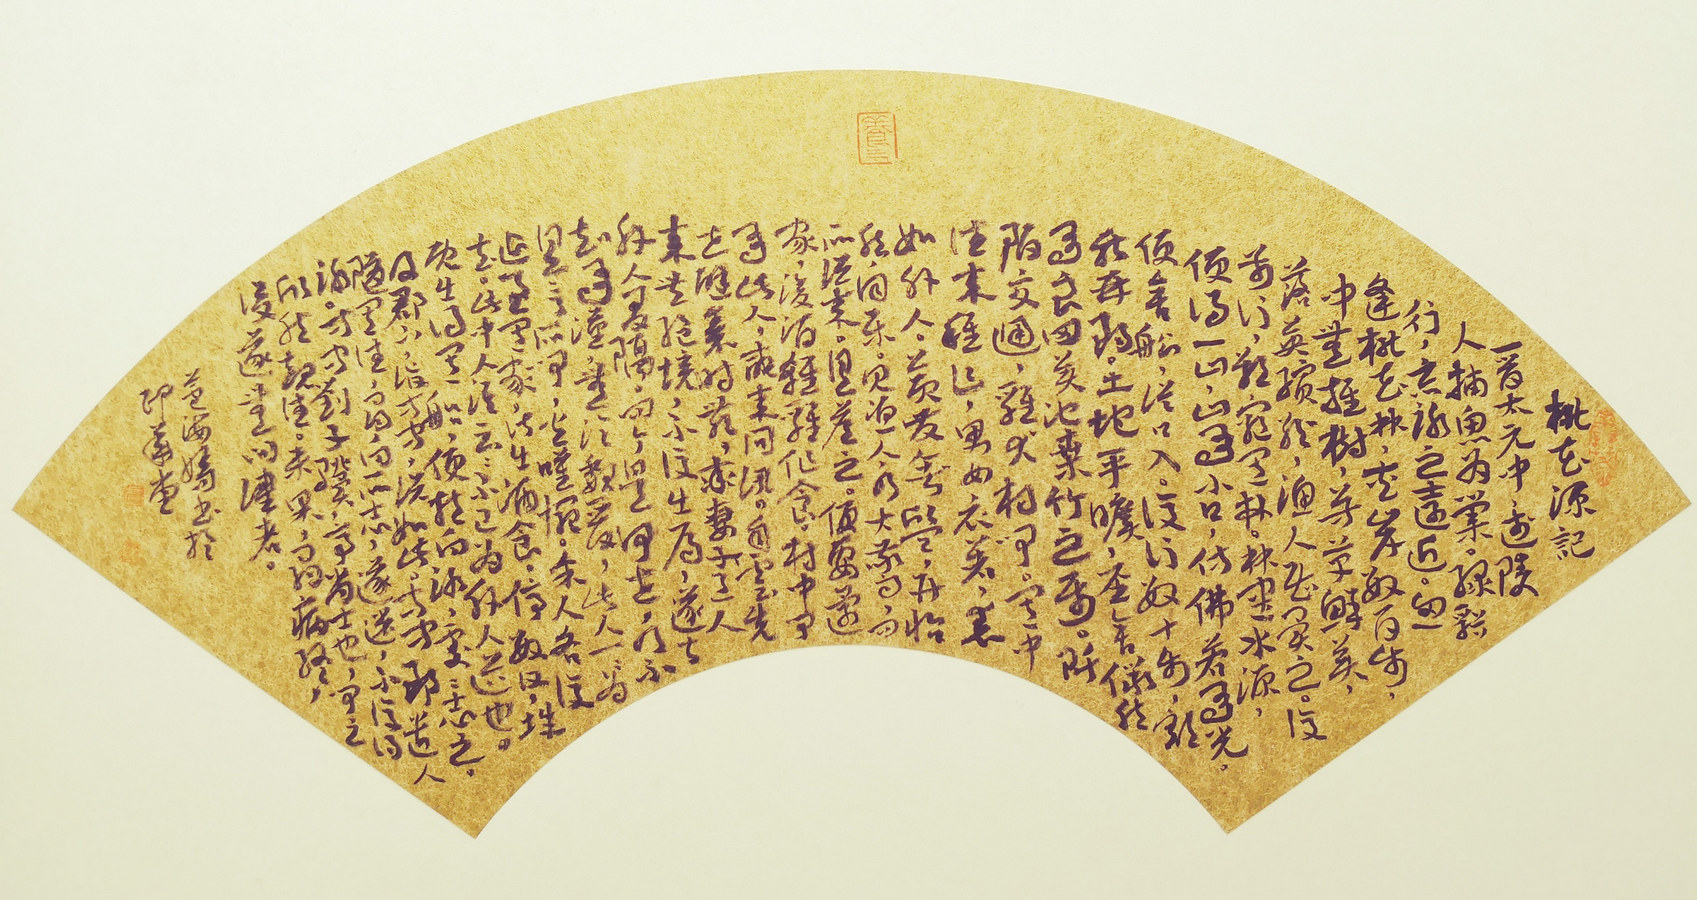 桃花源記
晉太元中,武陵
人捕魚為業。緣谿
行,忘路之遠近。忽
逢桃花林,夾岸數百步,
中無雜樹,芳草鮮美,
落英繽紛,漁人甚異之。復
前行,欲窮其林。林盡水源,
便得一山,山有小口,仿佛若有光。
便舍船,從口入。復行數十步,豁
然開朗。土地平曠,屋舍儼然
有良田美池桑竹之屬。阡
陌交通,雞犬相聞。其中
往來種作,男女衣著,悉
如外人。黃髮垂髫,並怡
然自樂。見漁人,乃大驚,問
所從來。具答之。便要還
家,設酒殺雞作食。村中聞
有此人,咸來問訊。自云先
世避秦時亂,率妻子邑人
來此絕境,不復出焉,遂與
外人間隔。問今是何世,乃不
知有漢,無論魏晉,此人一一為
具言所聞,皆嘆惋。余人各復
延至其家,皆出酒食。停數日,辭
去。此中人語云:不足為外人道也。
既出,得其船,便扶向路,處處志之。
及郡下,詣太守,說如此。太守即遣人
隨其往,尋向所志,遂迷,不復得
路。劉子驥,高尚士也,聞之
欣然規往。未果,尋病終,
後遂無問津者。
范海書於
堂